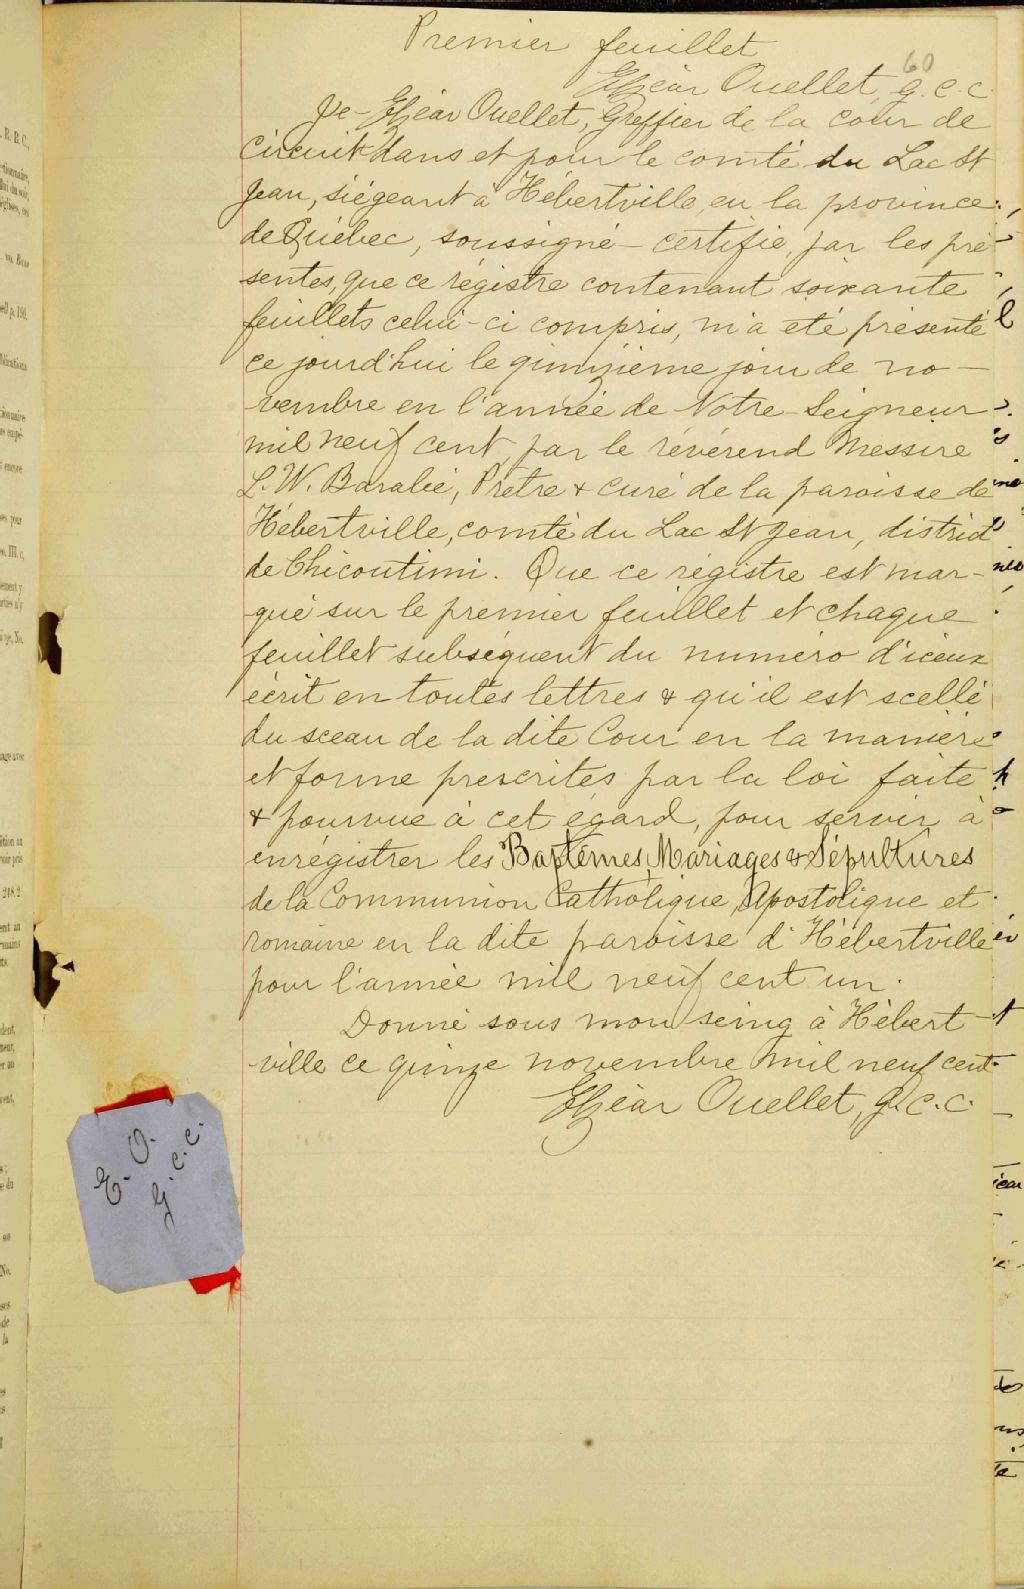 Premier feuillet
60
Elzéar Ouellet, g. c. c.
Je Elzéar Ouellet, Greffier de la cour de
Circuit dans et pour le comté du Lac St
Jean, siégeant à Hébertville, en la province
de Québec, soussigné - certifie, par les pré-
sentes, que ce régistre contenant soixante
feuillets celui-ci compris, m'a eté présenté
ce jourd'hui le quinzième jour de no-
vembre en l'année de Notre-Seigneur
mil neuf cent, par le révérend Messire
L. W. Barabé, Prêtre & curé de la paroisse de
Hébertville, comté du Lac St Jean, district
de Chicoutimi. Que ce régistre est mar-
qué sur le premier feuillet et chaque
feuillet subséquent du numéro d'iceux
écrit en toutes lettres & qu'il est scellé
du sceau de la dite Cour en la manière
et forme prescrites par la loi faite
& pourvue à cet égard, pour servir à
enrégistrer les Baptêmes, Mariages & Sépultures
de la Communion Catholique, Apostolique et
romaine en la dite paroisse d'Hébertville
pour l'année mil neuf cent un.
Donné sous mon seing à Hébert-
ville ce quinze novembre mil neuf cent.
Elzéar Ouellet, g. c. c.
E. O.
g. c. c.